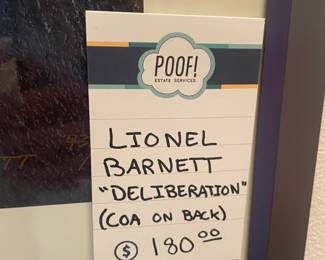 POOF!
ESTATE SERVICES
LIONEL
BARNETT
"DELIBERATION"
(COA ON BACK)
$ 180 00